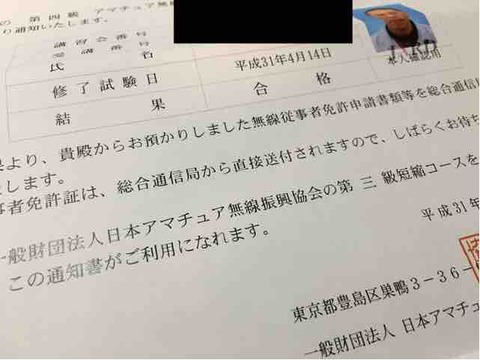 の 第 四 級 アマチュア無
り通知いたします。
講習会番号
受講番号
氏 名
修了試験日 平成31年4月14日
結 果 合 格
本人確認用
より、貴殿からお預かりしました無線従事者免許申請書類等を総合通信
します。
事者免許証は、総合通信局から直接送付されますので、しばらくお待ち
一般財団法人日本アマチュア無線振興協会の第 三 級短縮コースを
この通知書がご利用になれます。
平成31年
東京都豊島区巣鴨3-36-
一般財団法人 日本アマチュ